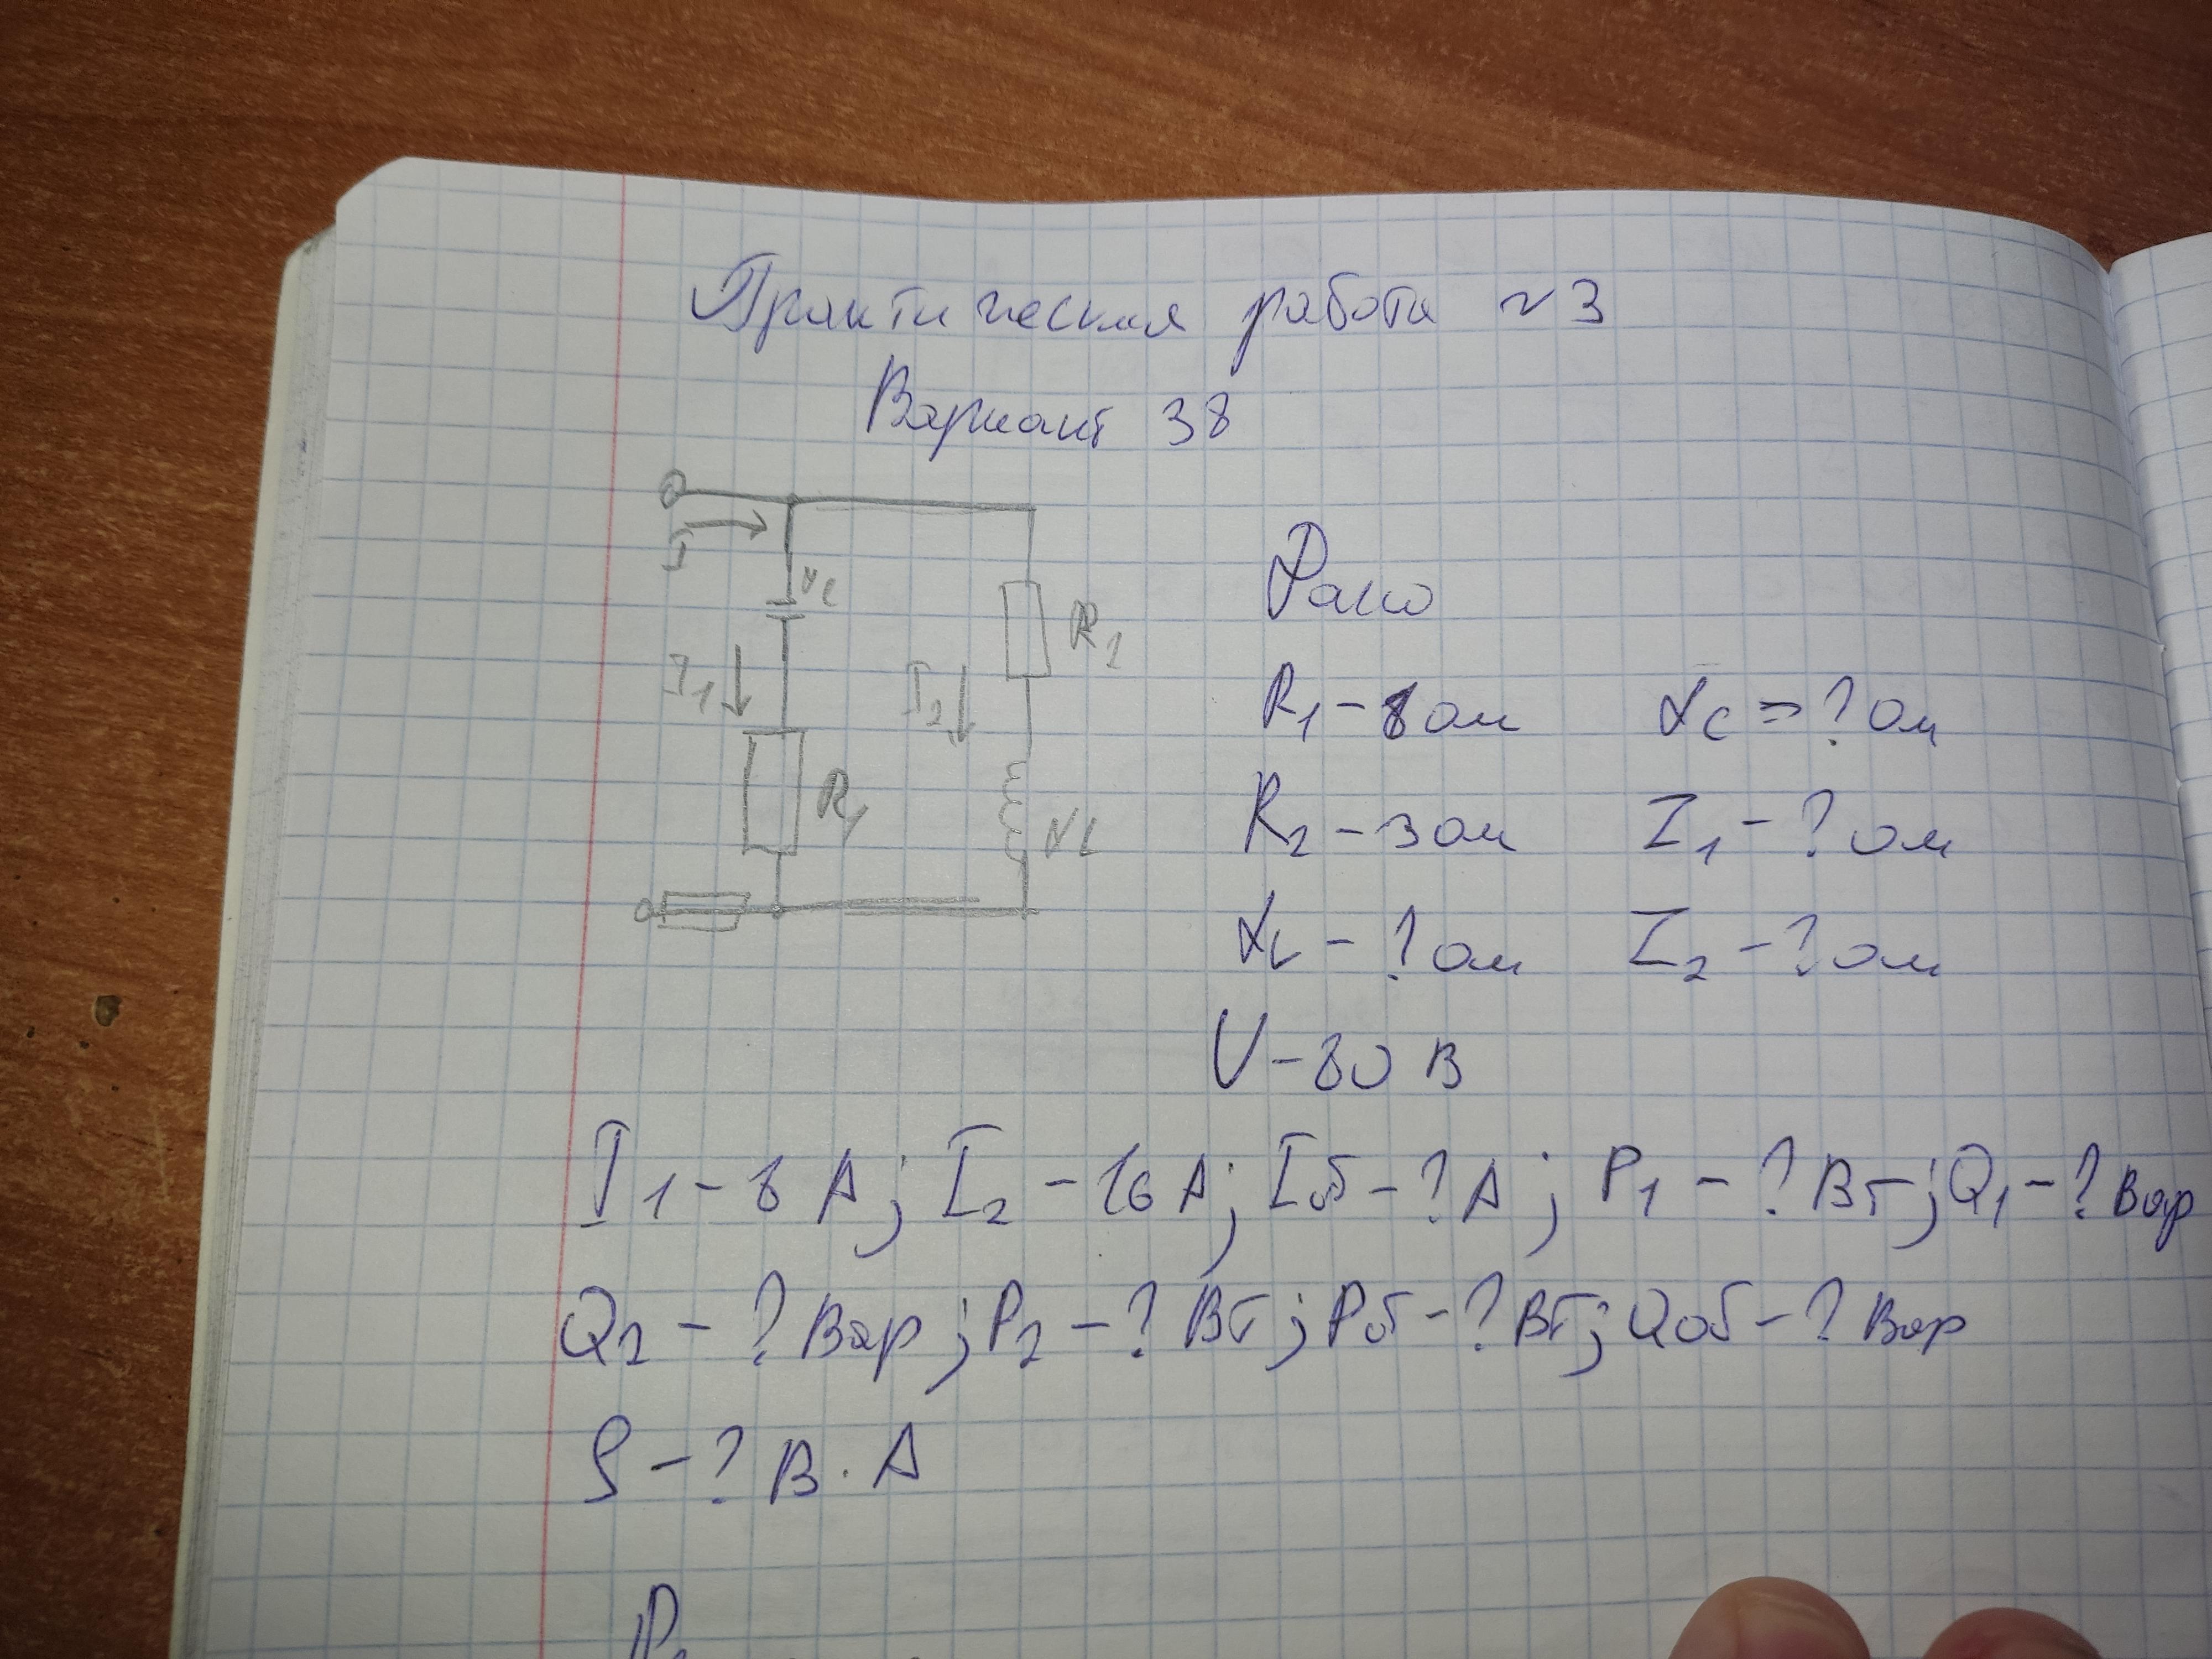 Практическая работа №3
Вариант 38
I
Xc
R2
I1
I2
R1
XL
Дано
R1 - 8 ом Xc = ? ом
R2 - 3 ом Z1 - ? ом
XL - ? ом Z2 - ? ом
U - 80 В
I1 - 8 А; I2 - 16 А; Iоб - ? А; P1 - ? Вт; Q1 - ? Вар
Q2 - ? Вар; P2 - ? Вт; Pоб - ? Вт; Qоб - ? Вар
S - ? В·А